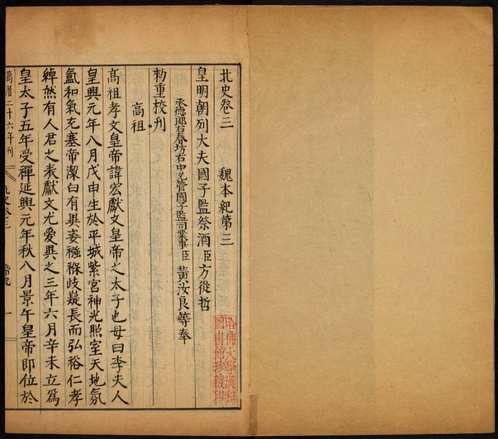 北史卷三 魏本紀第三
皇明朝列大夫國子監祭酒臣方從哲
承德郎右春坊右中允管國子監司業事臣黃汝良等奉
勅重校刊
高祖
高祖孝文皇帝諱宏獻文皇帝之太子也母曰李夫人
皇興元年八月戊申生於平城紫宮神光照室天地氛
氳和氣充塞帝潔白有異姿襁褓岐嶷長而弘裕仁孝
綽然有人君之表獻文尤愛異之三年六月辛未立爲
皇太子五年受禪延興元年秋八月景午皇帝即位於
萬曆二十六年刊